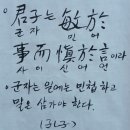 ○ 君子는 敏於
군자 민어
事而愼於言이라
사이 신어언
○ 군자는 일에는 민첩하고
말은 삼가야 한다.
(공자)